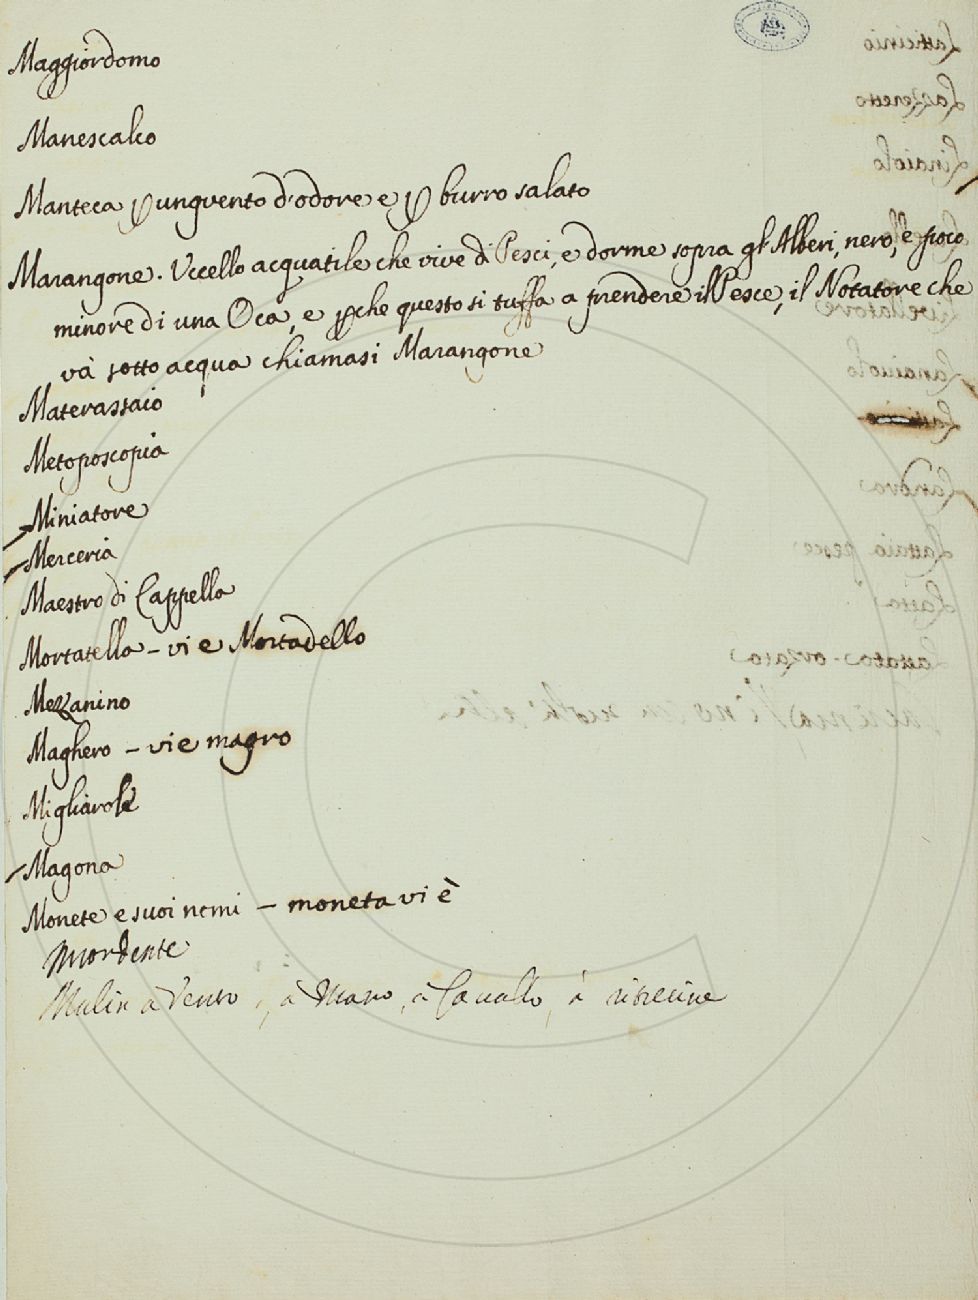 Maggiordomo
Manescalco
Manteca p unguento d'odore e p burro salato
Marangone. Vccello acquatile che vive di Pesci, e dorme sopra gl'Alberi, nero, e poco
minore di una Oca, e pche questo si tuffa a prendere il Pesce, il Notatore che
và sotto acqua chiamasi Marangone
Materassaio
Metoposcopia
Miniatore
Merceria
Maestro di Cappella
Mortatella – vi e Mortadello
Mezzanino
Maghero – vi e magro
Migliarole
Magona
Monete e suoi nomi – moneta vi è
Mordente
Mulin a Vento, à Mano, à Cavallo, à ritrecine